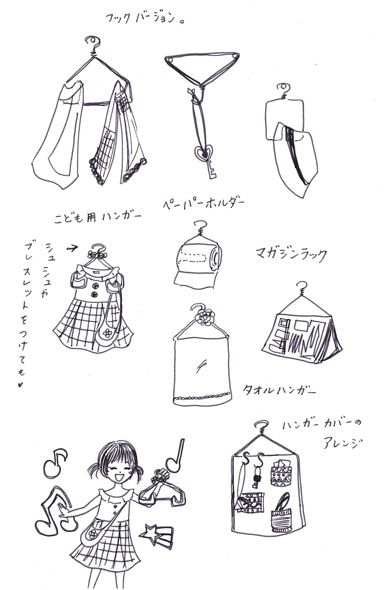 フック バージョン。
ペーパーホルダー
こども用 ハンガー
シュシュや
ブレスレットをつけても♥
マガジンラック
タオルハンガー
ハンガー カバーの
アレンジ